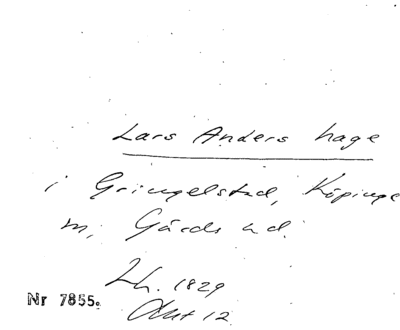 Lars Anders hage
i Gringelstad, Köpinge
m, Gärds hd.
Lh. 1829
Akt 12
Nr 7855.